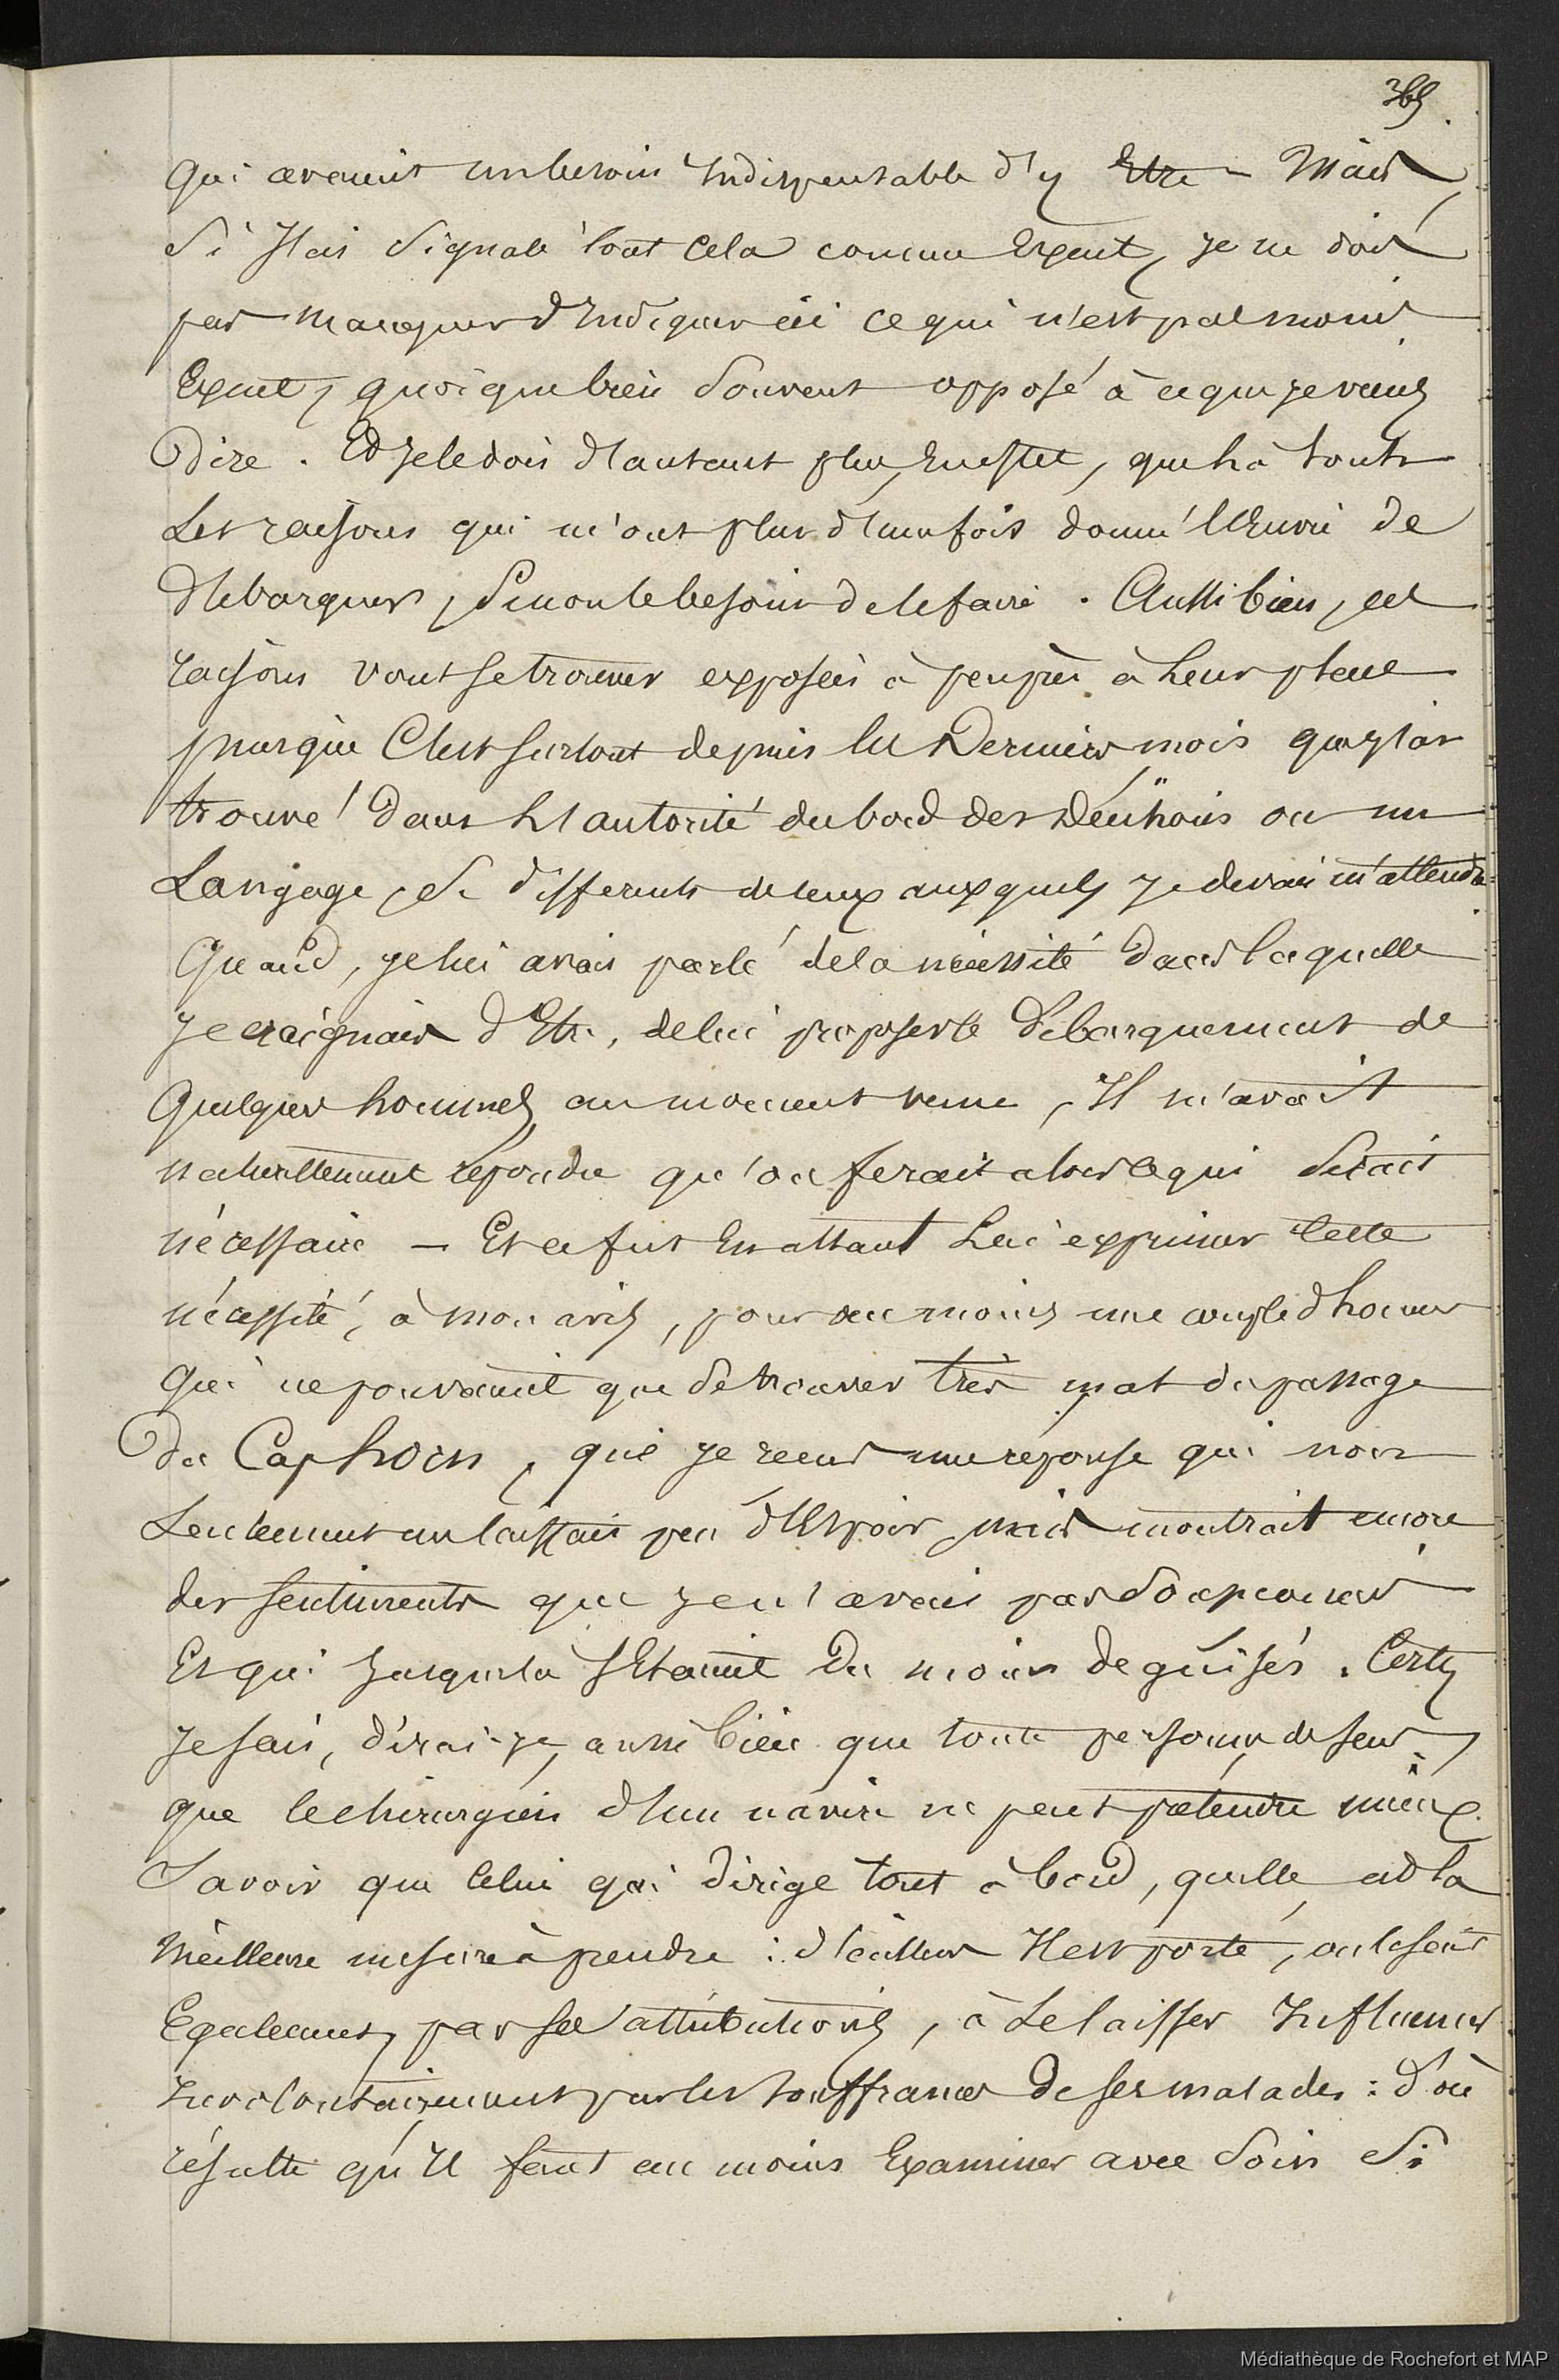 365
qui avaient un besoin Indispensable d'y Etre – Mais,
Si J'ai Signalé tout Cela comme Exact, je ne dois
pas manquer d'Indiquer ici ce qui n'est pas moins
Exact, quoique bien Souvent opposé à ce que je viens
Dire. Et je le dois d'autant plus, En effet, que là sont
Les raisons qui m'ont plus d'une fois donné l'Envie de
débarquer, Sinon le besoin de le faire. Aussi bien, ces
raisons vont se trouver exposées à peu près à Leur place
puisque C'est surtout depuis les Derniers mois que j'ai
trouvé Dans L'autorité du bord des Décisions ou un
Langage, Si différents de ceux auxquels je devais m'attendre.
Quand, je lui avais parlé de la nécessité Dans laquelle
je craignais d'Etre, de lui proposer le Débarquement de
Quelques hommes, au moment venu, Il m'avait
naturellement répondu qu'on ferait alors ce qui Serait
nécessaire – Et ce fut En allant Lui exprimer Cette
nécessité, à mon avis, pour au moins une couple d'hommes
Qui ne pouvaient que Se trouver très mal du passage
Du Cap horn, que je reçus une réponse qui non
Seulement me laissait peu d'Espoir, mais montrait encore
des sentiments que je n'avais pas Soupçonnés
Et qui Jusque là s'Etaient Du moins deguisés. Certes
Je sais, dirai-je, aussi bien que toute personne de sens,
que le chirurgien d'un navire ne peut prétendre mieux
Savoir que Celui qui Dirige tout à bord, quelle est la
Meilleure mesure à prendre : d'ailleurs Il est porté, on le sait
Egalement, par ses attributions, à Se laisser Influencer
Involontairement par les souffrances de ses malades : d'où
résulte qu'Il faut au moins Examiner avec Soin Si
Médiathèque de Rochefort et MAP